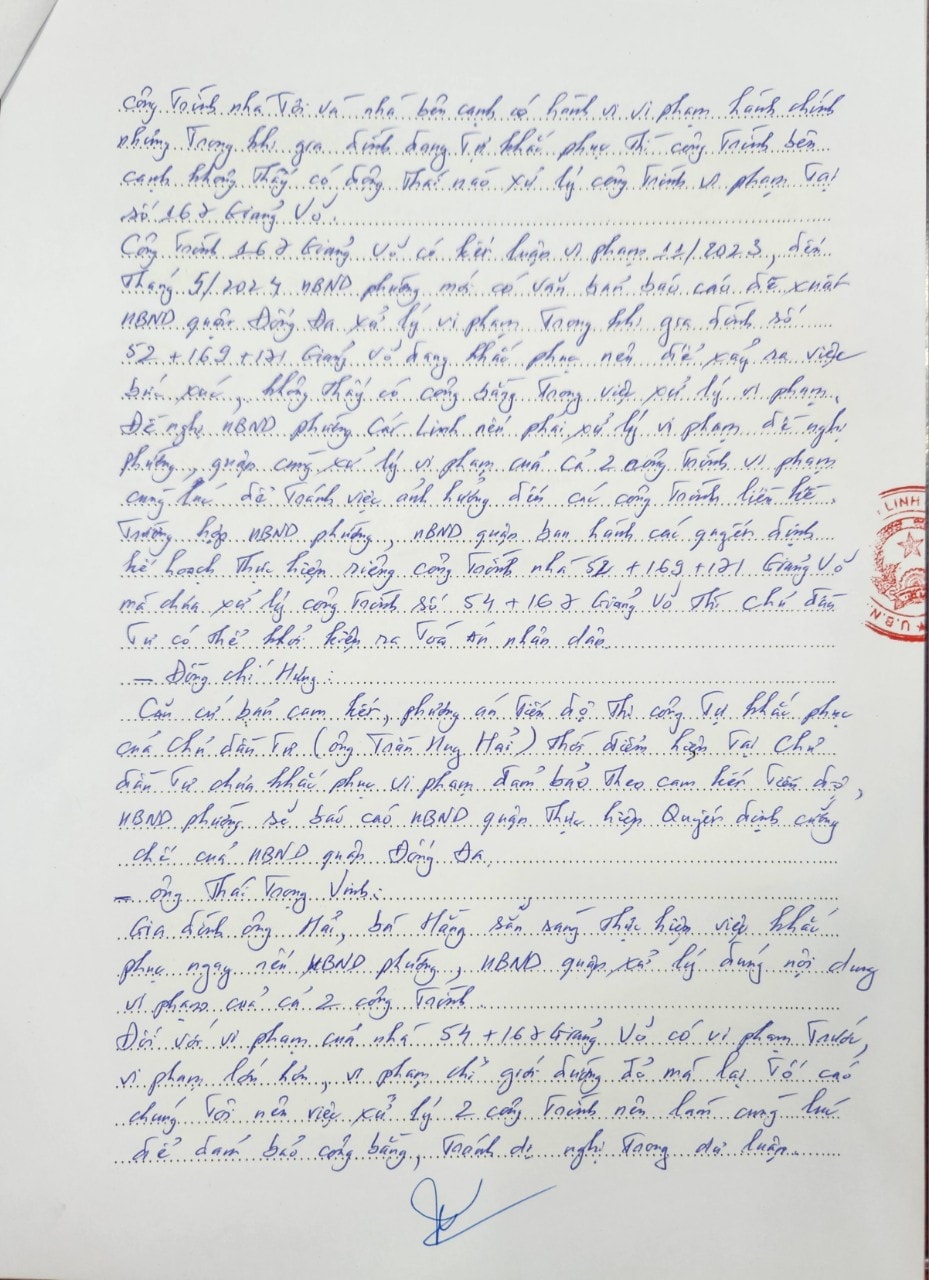 công trình nhà tôi và nhà bên cạnh có hành vi vi phạm hành chính
nhưng trong khi gia đình đang tự khắc phục thì công trình bên
cạnh không thấy có động thái nào xử lý công trình vi phạm tại
số 167 Giảng Võ.
Công trình 167 Giảng Võ có kết luận vi phạm 11/2023, đến
tháng 5/2024 UBND phường mới có văn bản báo cáo đề xuất
UBND quận Đống Đa xử lý vi phạm trong khi gia đình số
52 + 169 + 171 Giảng Võ đang khắc phục nên để xảy ra việc
bức xúc, không thấy có công bằng trong việc xử lý vi phạm.
Đề nghị UBND phường Cát Linh nên phải xử lý vi phạm đề nghị
phường, quận cùng xử lý vi phạm của cả 2 công trình vi phạm
cùng lúc để tránh việc ảnh hưởng đến các công trình liền kề.
Trường hợp UBND phường, UBND quận ban hành các quyết định
kế hoạch thực hiện riêng công trình nhà 52 + 169 + 171 Giảng Võ
mà chưa xử lý công trình số 54 + 167 Giảng Võ thì chủ đầu
tư có thể khởi kiện ra Toà án nhân dân.
- Đồng chí Hưng:
Căn cứ bản cam kết, phương án tiến độ thi công tự khắc phục
của chủ đầu tư (ông Trần Huy Hải) thời điểm hiện tại chủ
đầu tư chưa khắc phục vi phạm đảm bảo theo cam kết tiến độ,
UBND phường sẽ báo cáo UBND quận thực hiện Quyết định cưỡng
chế của UBND quận Đống Đa.
- Ông Thái Trọng Vinh:
Gia đình ông Hải, bà Hằng sẵn sàng thực hiện việc khắc
phục ngay nếu UBND phường, UBND quận xử lý đúng nội dung
vi phạm của cả 2 công trình.
Đối với vi phạm của nhà 54 + 167 Giảng Võ có vi phạm trước,
vi phạm lớn hơn, vi phạm chỉ giới đường đỏ mà lại tố cáo
chúng tôi nên việc xử lý 2 công trình nên làm cùng lúc
để đảm bảo công bằng, tránh dị nghị trong dư luận.
LINH
★ U.B.N